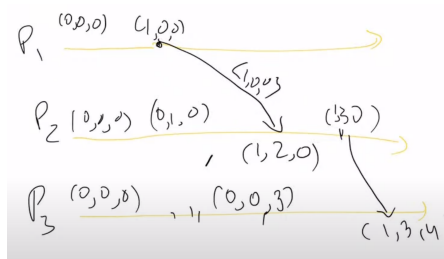 P1 (0,0,0) (1,0,0)
{1,0,0}
P2 (0,0,0) (0,1,0) (1,3,0)
(1,2,0)
P3 (0,0,0) (0,0,3)
(1,3,4